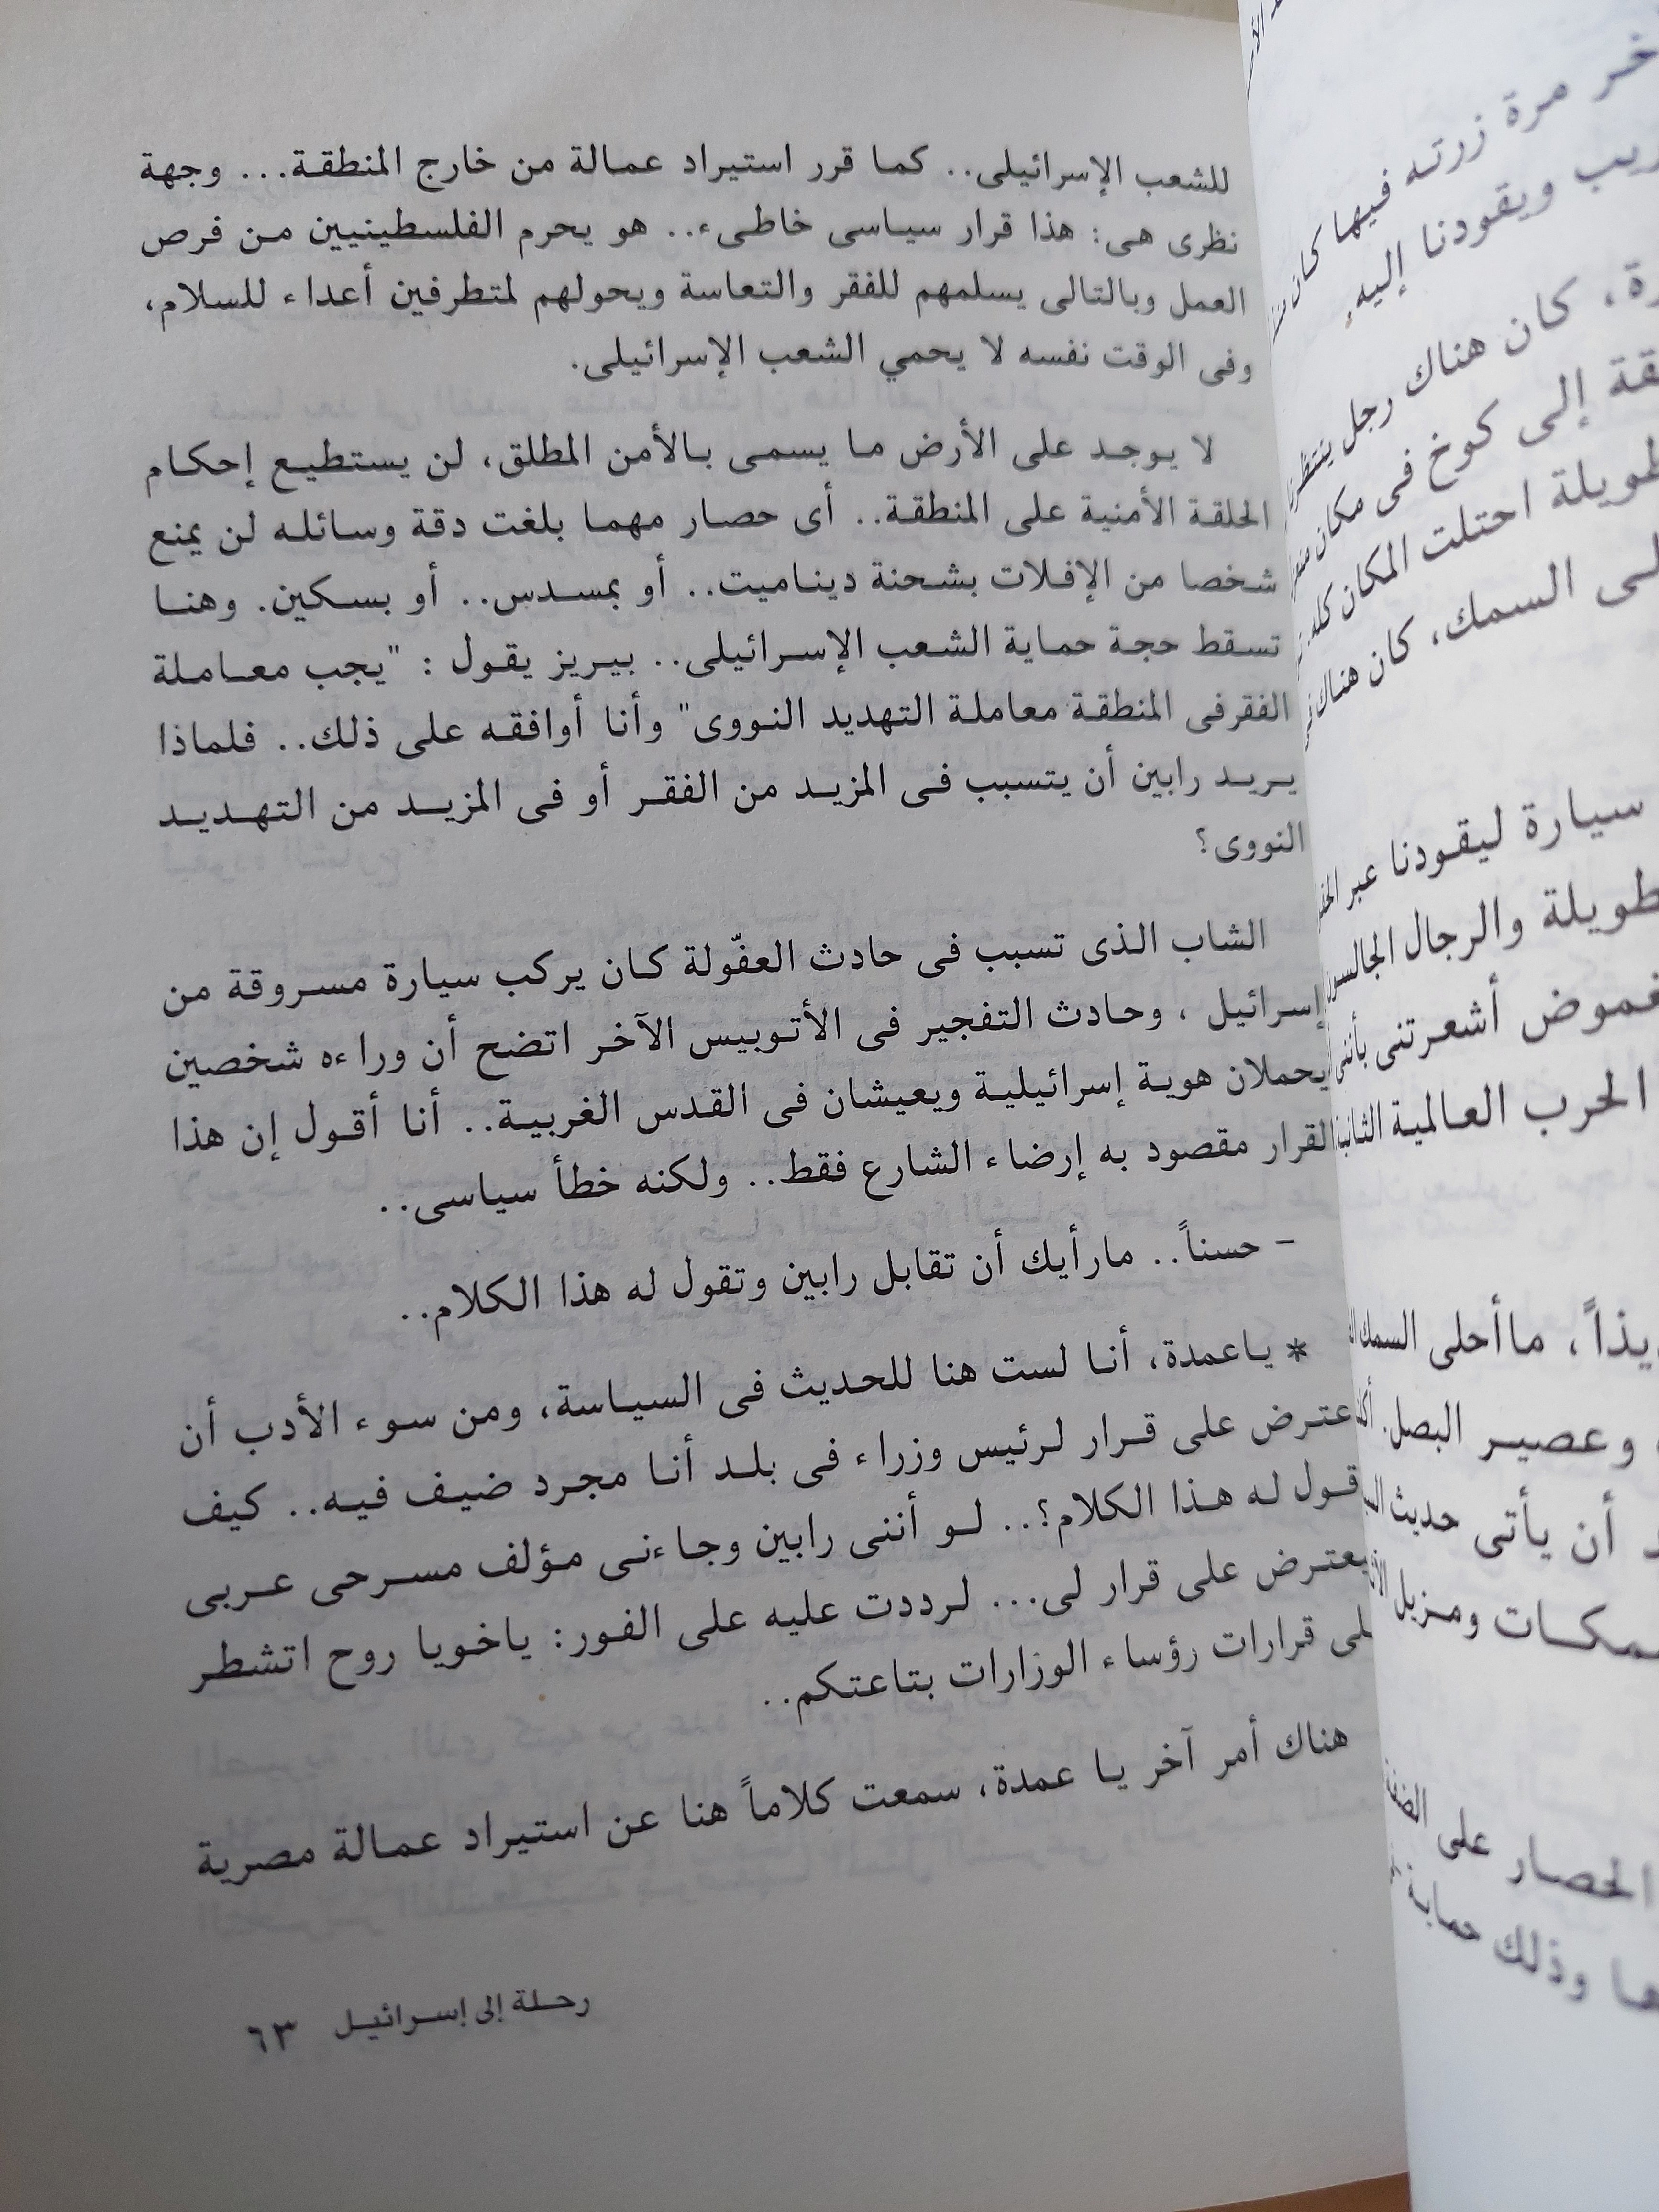 للشعب الإسرائيلى.. كما قرر استيراد عمالة من خارج المنطقة... وجهة
نظرى هى: هذا قرار سياسى خاطىء.. هو يحرم الفلسطينيين من فرص
العمل وبالتالى يسلمهم للفقر والتعاسة ويحولهم لمتطرفين أعداء للسلام،
وفى الوقت نفسه لا يحمي الشعب الإسرائيلى.
لا يوجد على الأرض ما يسمى بالأمن المطلق، لن يستطيع إحكام
الحلقة الأمنية على المنطقة.. أى حصار مهما بلغت دقة وسائله لن يمنع
شخصا من الإفلات بشحنة ديناميت.. أو بمسدس.. أو بسكين. وهنا
تسقط حجة حماية الشعب الإسرائيلى.. بيريز يقول : "يجب معاملة
الفقرفى المنطقة معاملة التهديد النووى" وأنا أوافقه على ذلك.. فلماذا
يريد رابين أن يتسبب فى المزيد من الفقر أو فى المزيد من التهديد
النووى؟
الشاب الذى تسبب فى حادث العفّولة كان يركب سيارة مسروقة من
إسرائيل ، وحادث التفجير فى الأتوبيس الآخر اتضح أن وراءه شخصين
يحملان هوية إسرائيلية ويعيشان فى القدس الغربية.. أنا أقول إن هذا
القرار مقصود به إرضاء الشارع فقط.. ولكنه خطأ سياسى..
- حسناً.. مارأيك أن تقابل رابين وتقول له هذا الكلام..
* ياعمدة، أنا لست هنا للحديث فى السياسة، ومن سوء الأدب أن
عترض على قرار لرئيس وزراء فى بلد أنا مجرد ضيف فيه.. كيف
قول له هذا الكلام؟.. لو أننى رابين وجاءنى مؤلف مسرحى عربى
يعترض على قرار لى... لرددت عليه على الفور: ياخويا روح اتشطر
لى قرارات رؤساء الوزارات بتاعتكم..
هناك أمر آخر يا عمدة، سمعت كلاماً هنا عن استيراد عمالة مصرية
رحلة إلى إسرائيل ٦٣
خر مرة زرته فيها كان
ريب ويقودنا إليه.
رة، كان هناك رجل ينتظرنا
قة إلى كوخ فى مكان
طويلة احتلت المكان كله
لى السمك، كان هناك
سيارة ليقودنا عبر
طويلة والرجال الجالسون
غموض أشعرتنى بأننى
الحرب العالمية الثانية
يذاً، ماأحلى السمك
وعصير البصل.
د أن يأتى حديث
مكات ومزيل
الحصار على
ها وذلك حماية